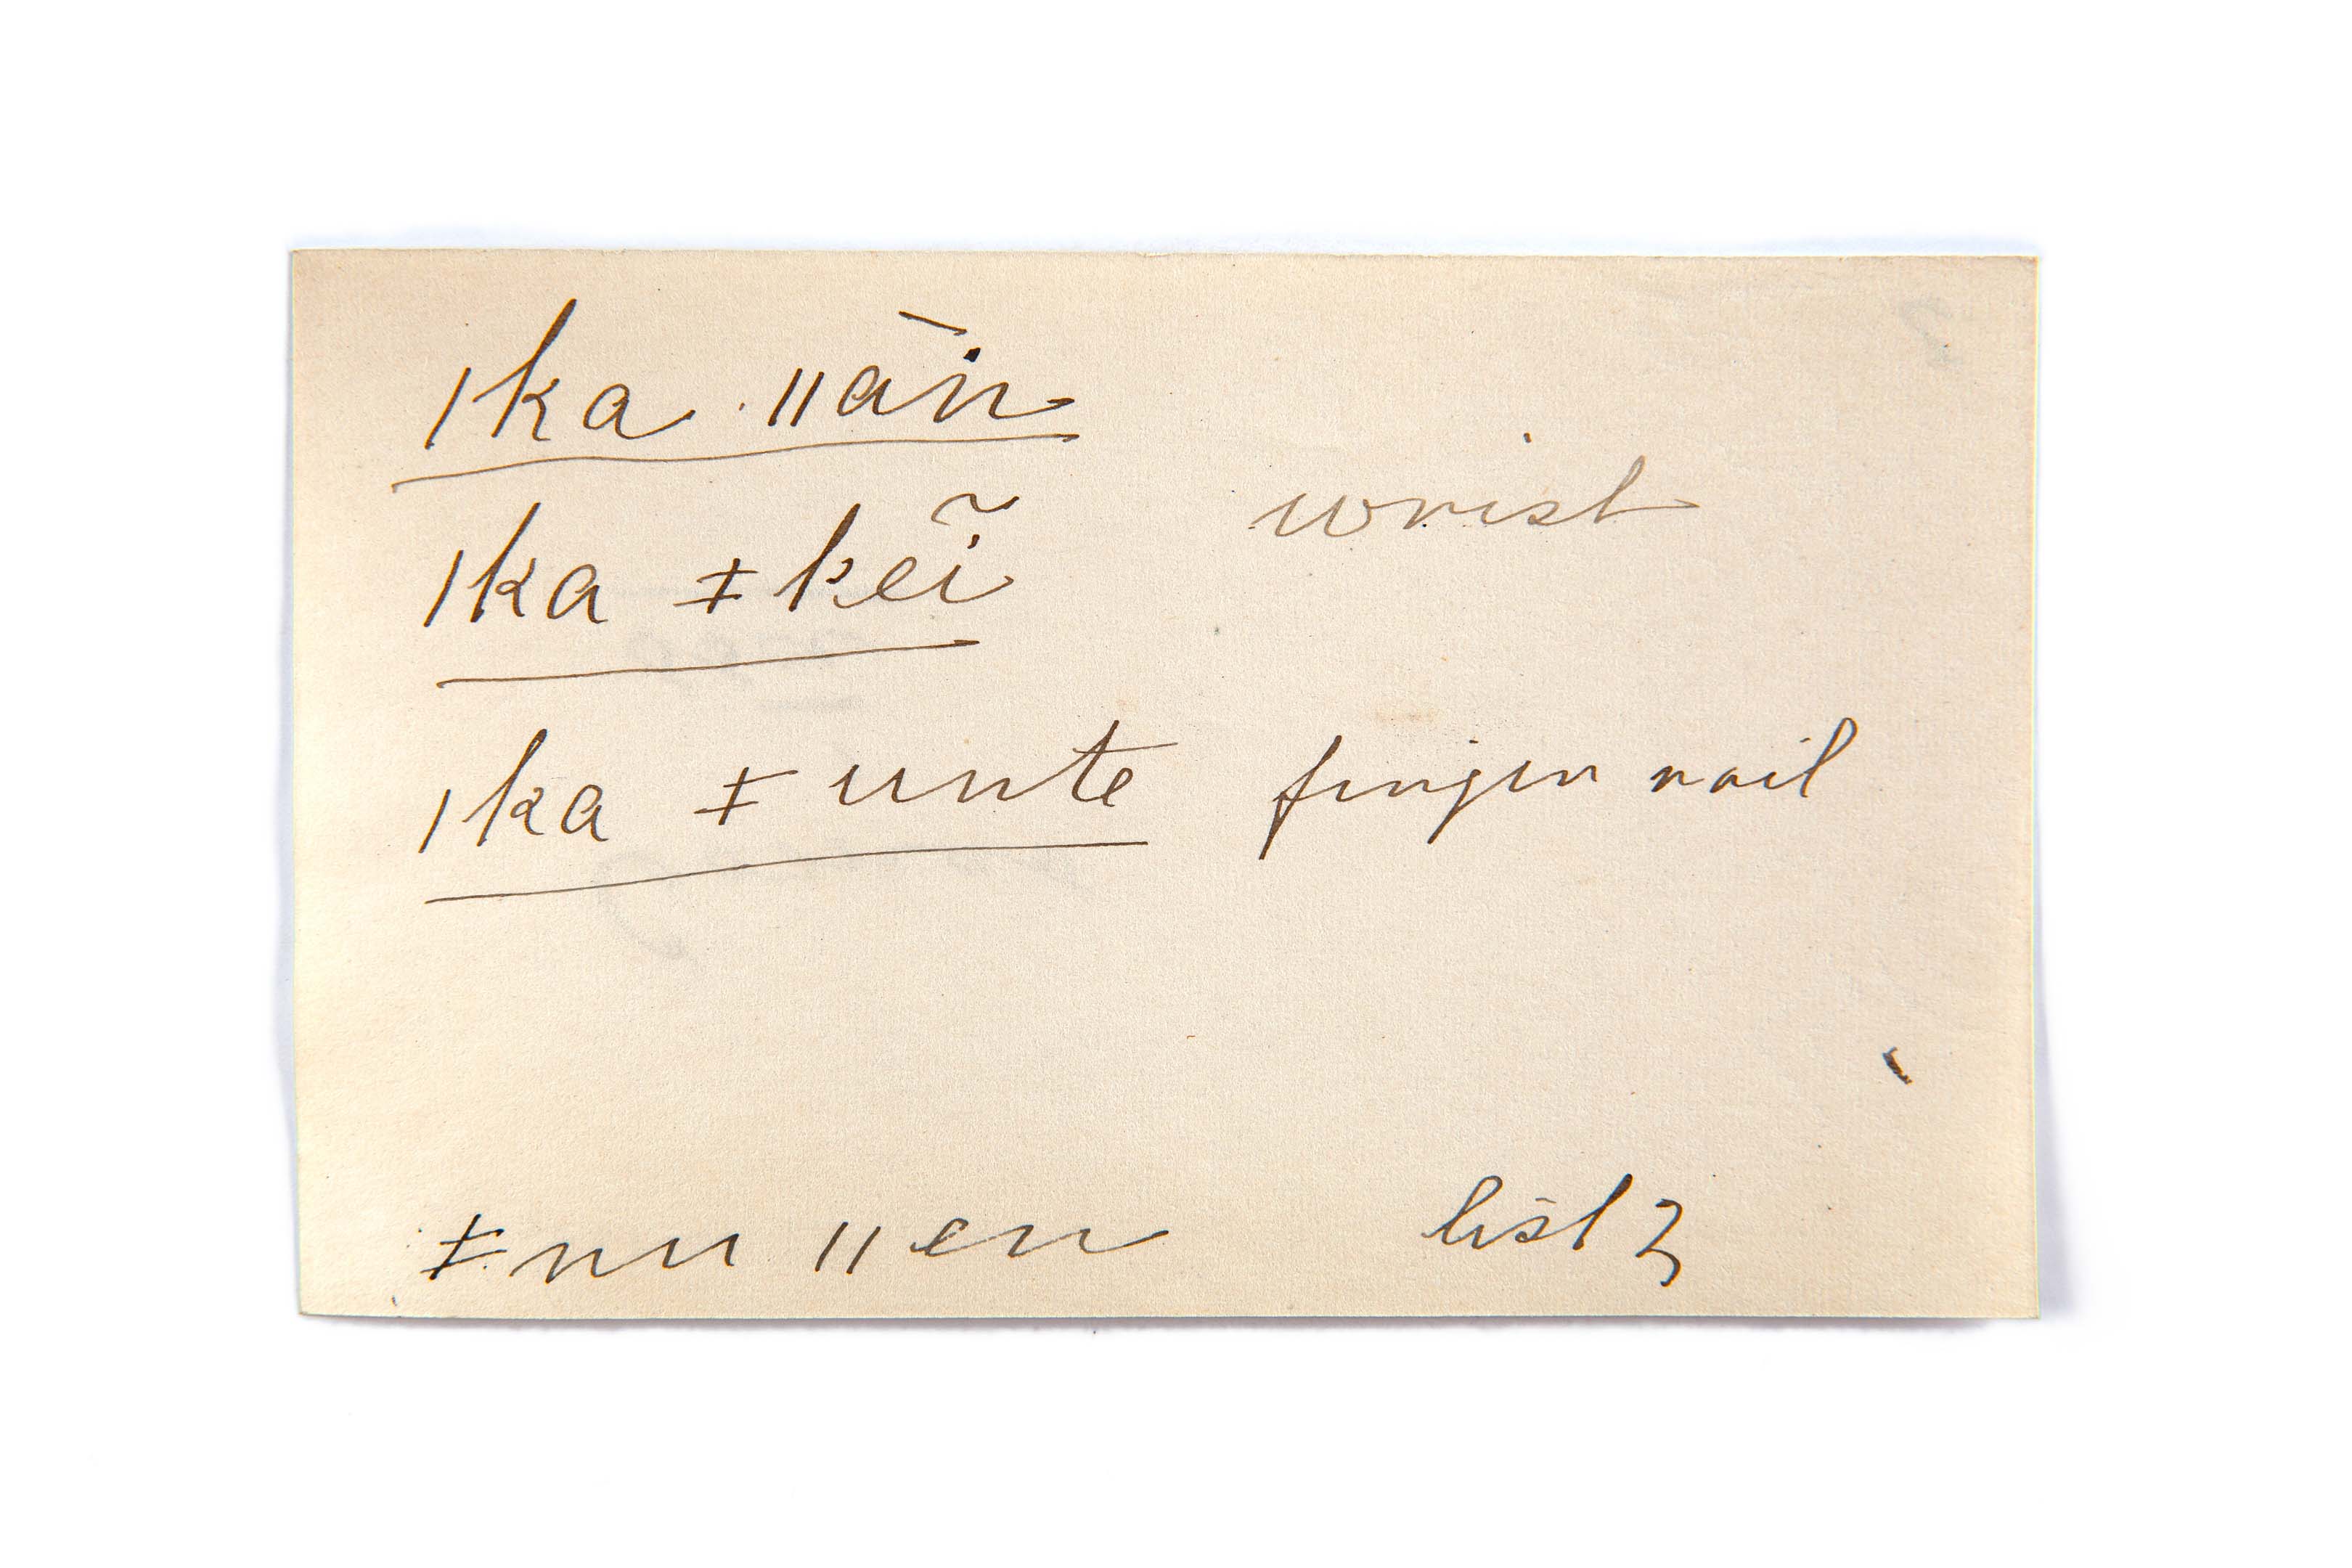 ǀka ǁāin
ǀka ǂkeĩ wrist
ǀka ǂunte finger nail
ǂnu ǁen list 3